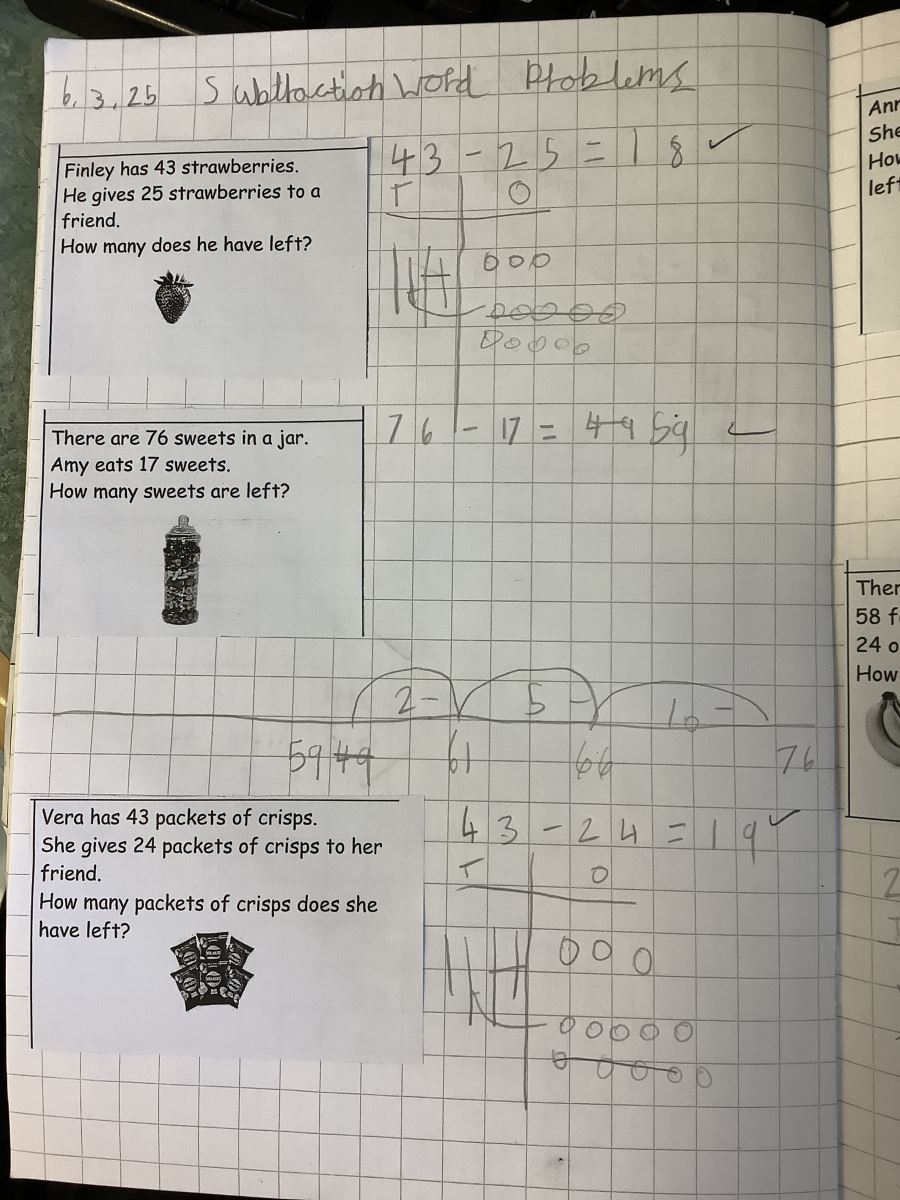 6.3.25 Subtraction Word Problems
Finley has 43 strawberries.
He gives 25 strawberries to a
friend.
How many does he have left?
43 - 25 = 18 ✓
T O
There are 76 sweets in a jar.
Amy eats 17 sweets.
How many sweets are left?
76 - 17 = 49 59
2- 5- 10-
59 49 61 66 76
Vera has 43 packets of crisps.
She gives 24 packets of crisps to her
friend.
How many packets of crisps does she
have left?
43 - 24 = 19 ✓
T O
She
How
left
58
24
How
2